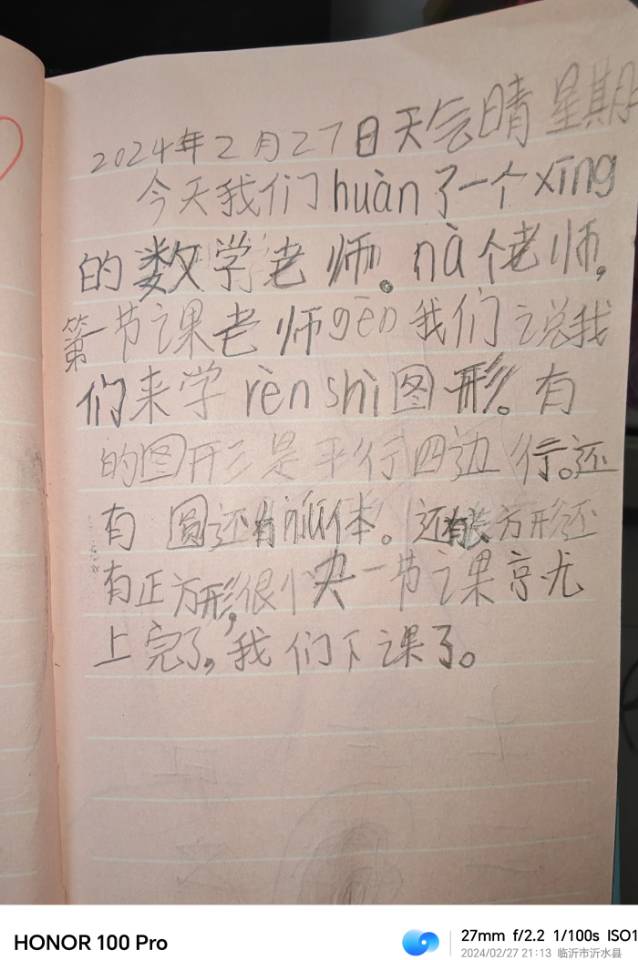 2024年2月27日天气晴 星期
今天我们huàn了一个xīng
的数学老师。nà个老师,
第一节课老师gēn我们说我
们来学rèn shì图形。有
的图形是平行四边行。还
有圆还有 体。还有长方形还
有正方形,很快一节课就
上完了,我们下课了。
HONOR 100 Pro
27mm f/2.2 1/100s ISO1
2024/02/27 21:13 临沂市沂水县